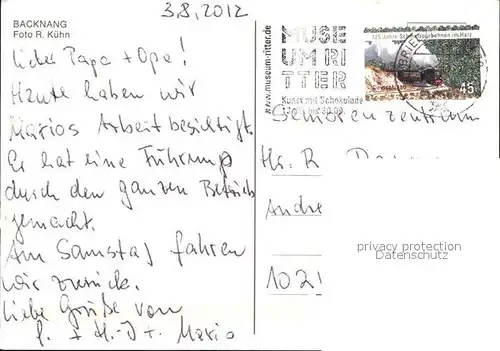 BACKNANG
Foto R. Kühn
3.8.2012
Lieber Papa + Opa!
Heute haben wir
Marios Arbeit besichtigt.
Er hat eine Führung
durch den ganzen Betrieb
gemacht.
Am Samstag fahren
wir zurück.
Liebe Grüße von
+ H.-J. + Mario
www.museum-ritter.de
MUSE
UM RI
TTER
Kunst mit Schokolade
125 Jahre Schmalspurbahnen im Harz
45
Seniorenzentrum
Hs. R
Andre
102
privacy protection
Datenschutz